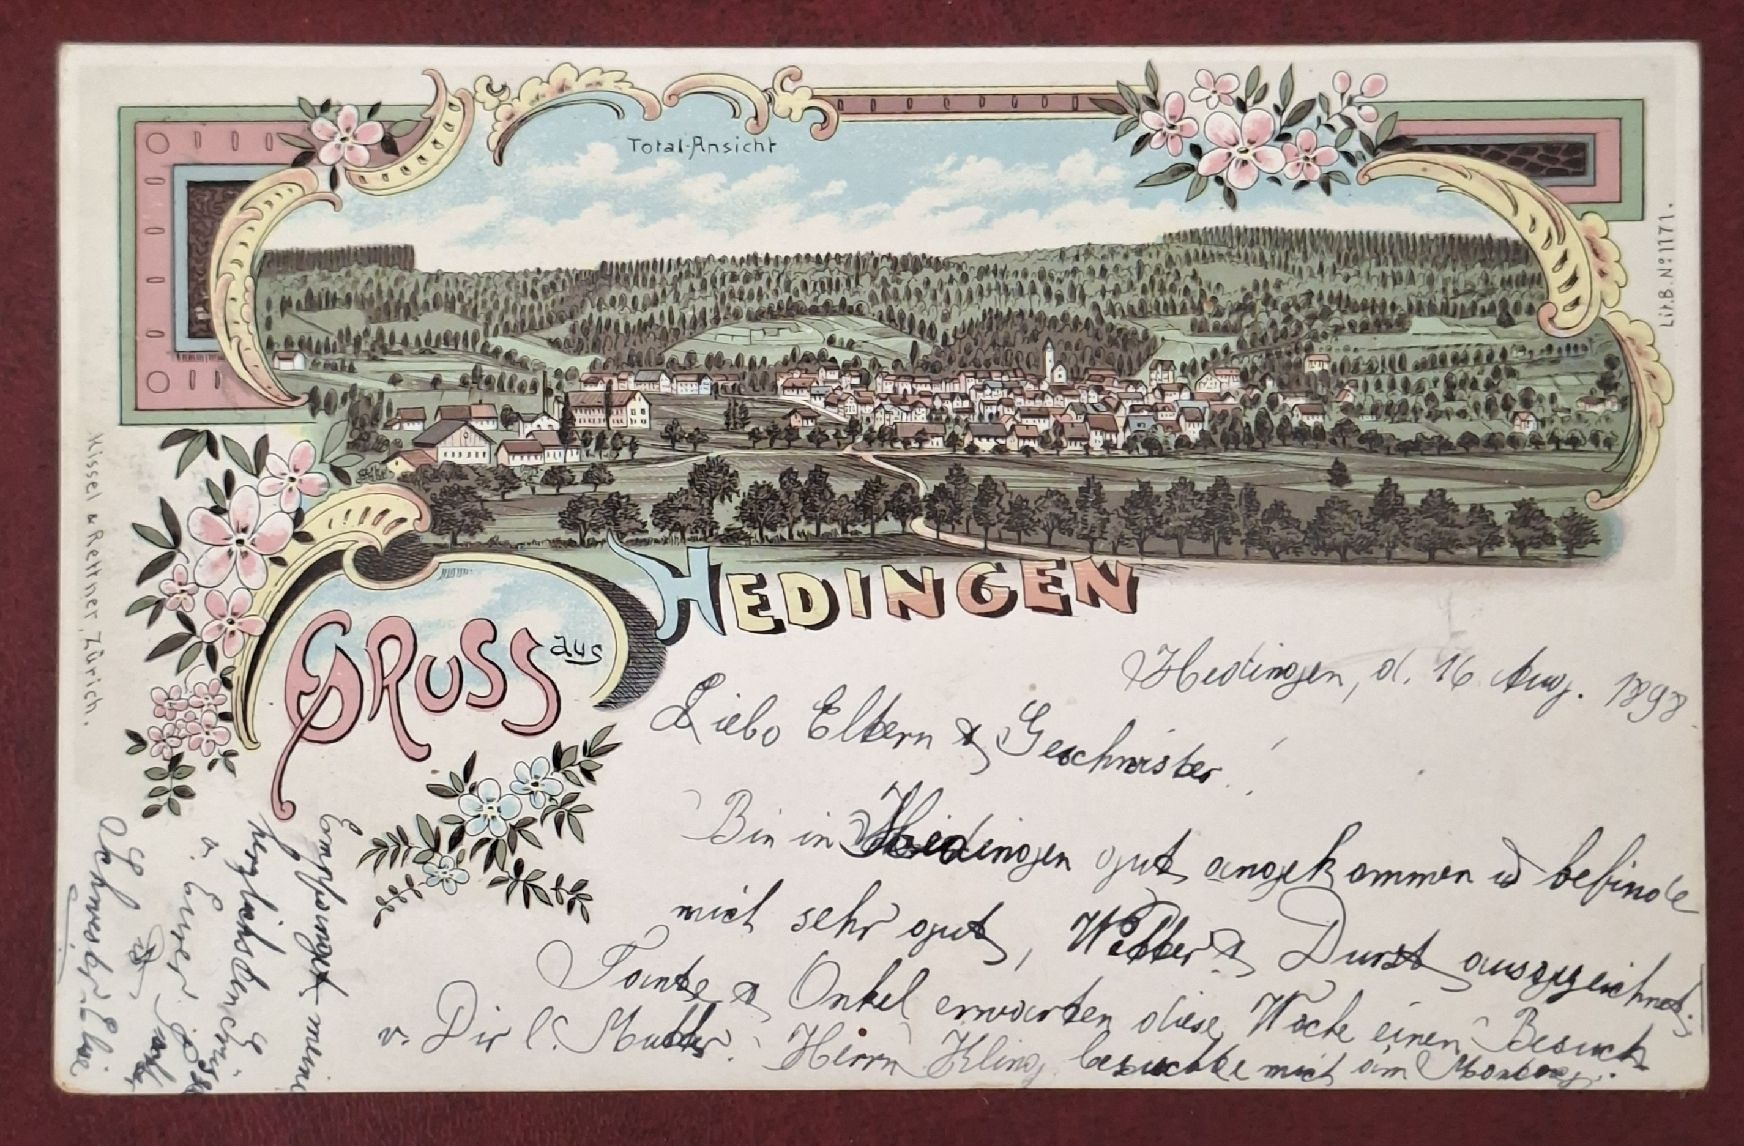 Total-Ansicht
Lit.B.Nº1171.
Kissel & Rettner, Zürich.
GRUSS aus HEDINGEN
Hedingen, d. 16. Aug. 1898.
Liebe Eltern & Geschwister!
Bin in Hedingen gut angekommen u befinde
mich sehr gut, Wetter & Durst ausgezeichnet.
Tante & Onkel erwarten diese Woche einen Besuch
v. Dir l. Mutter. Herrn Kling besuchte mich am
Empfanget meine
herzlichsten
u.
Schwester